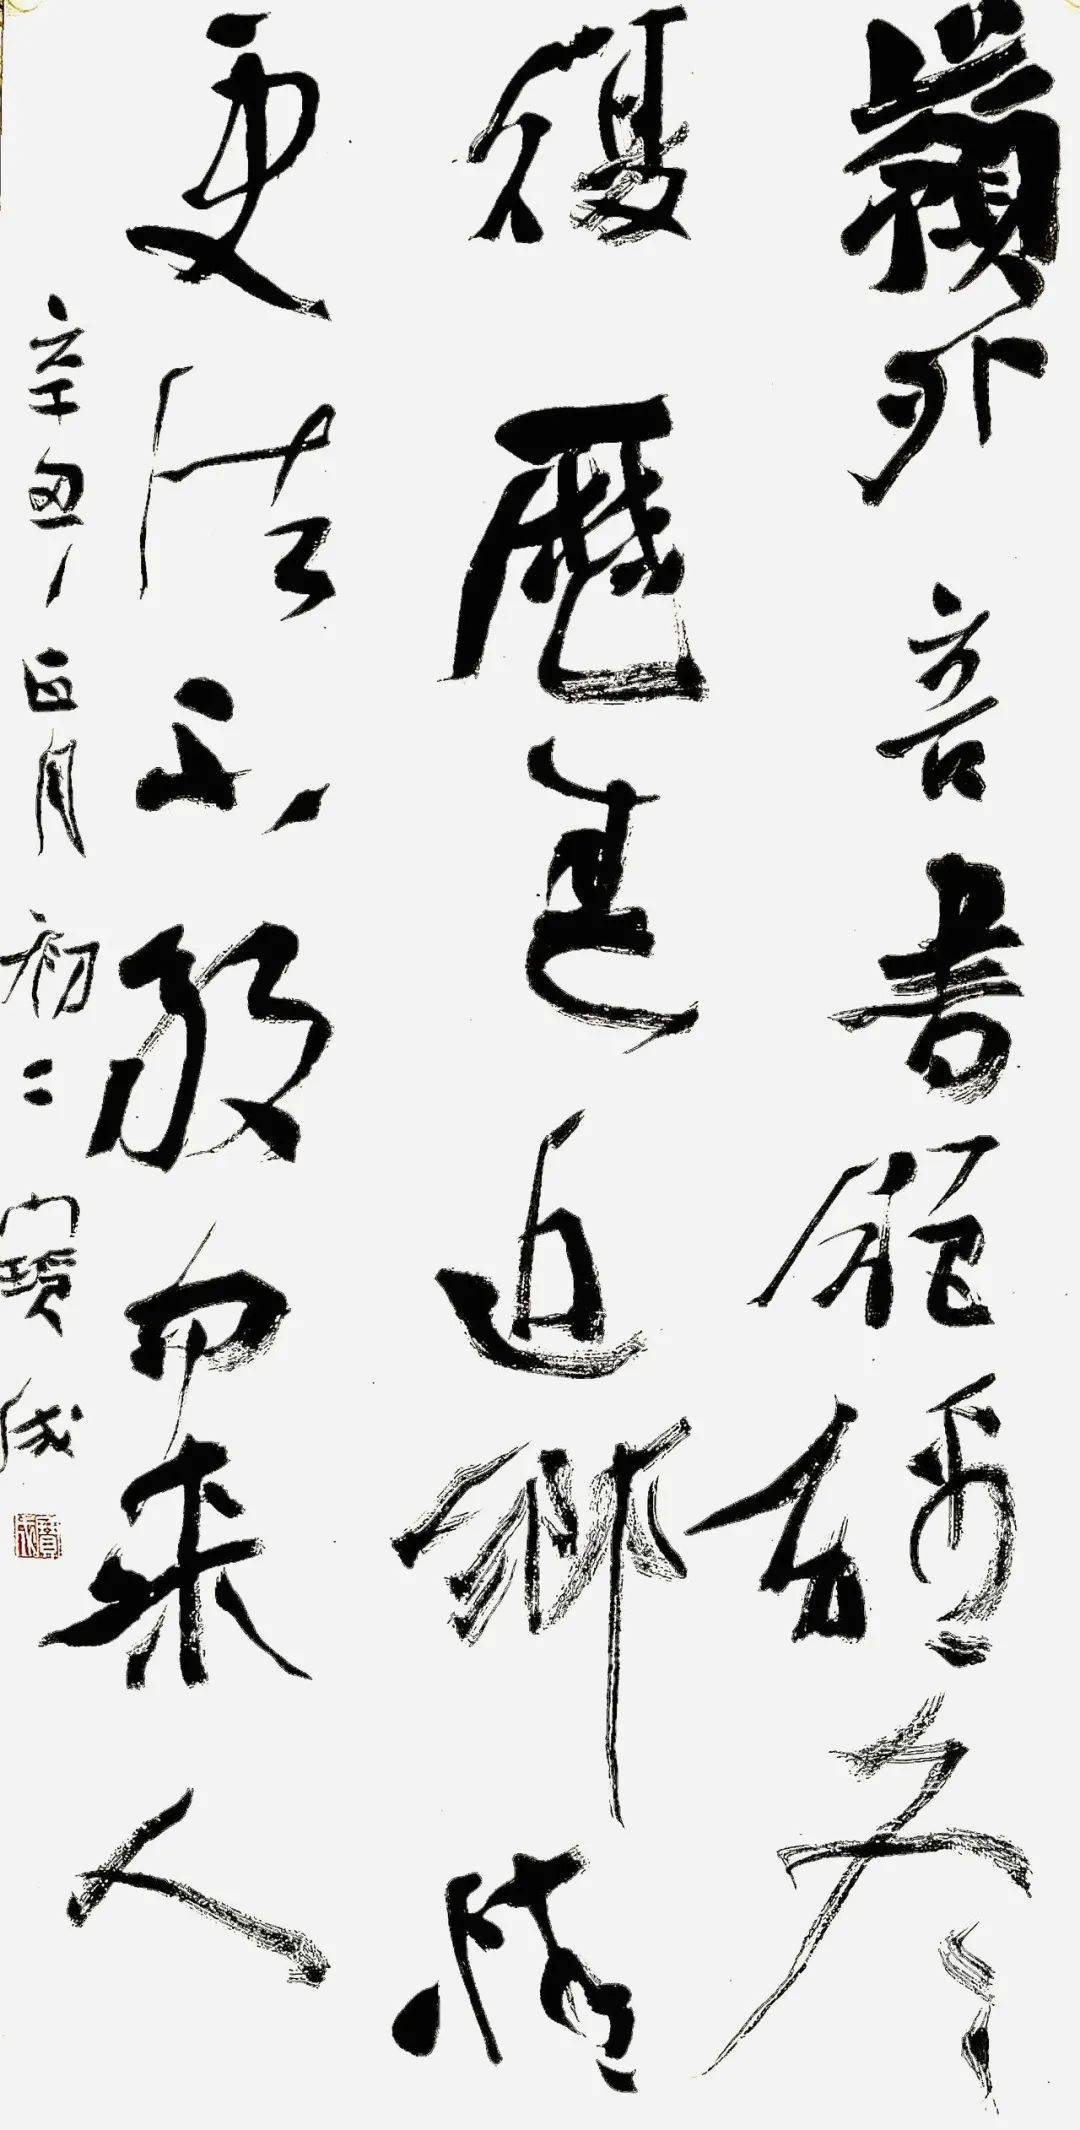 嶺外音書絕經冬
復歷春近鄉情
更怯不敢問來人
辛丑正月初二寶成